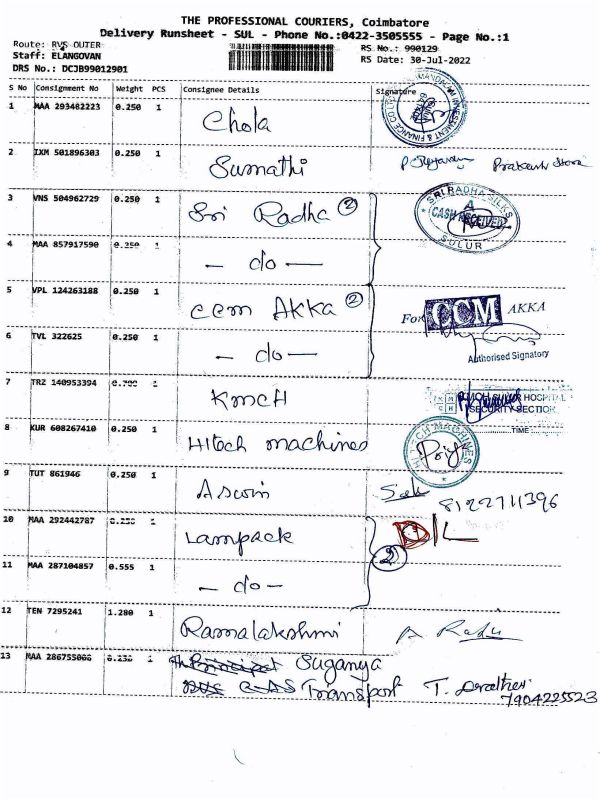 THE PROFESSIONAL COURIERS, Coimbatore
Delivery Runsheet - SUL - Phone No.:0422-3505555 - Page No.:1
Route: RVS OUTER RS No.: 990129
Staff: ELANGOVAN RS Date: 30-Jul-2022
DRS No.: DCJB99012901
S No Consignment No Weight PCS Consignee Details Signature
1 MAA 293482223 0.250 1 Chola
2 IXM 501896303 0.250 1 Sumathi Prakash
3 VNS 504962729 0.250 1 Sri Radha 2 SRI RADHA SILKS CASH RECEIVED SULUR
4 MAA 857917590 0.250 1 - do -
5 VPL 124263188 0.250 1 CCM AKKA 2 For CCM AKKA
6 TVL 322625 0.250 1 - do - Authorised Signatory
7 TRZ 140953394 1 KMCH KMCH SULUR HOSPITAL SECURITY SECTION TIME
8 KUR 608267410 0.250 1 Hitech machines HI-TECH MACHINES Priya
9 TUT 861946 0.250 1 Aswin 8122711396
10 MAA 292442787 0.250 1 Lampack
11 MAA 287104857 0.555 1 - do - 2
12 TEN 7295241 1.280 1 Ramalakshmi
13 MAA 1 Suganya
Transport T. 7904225523